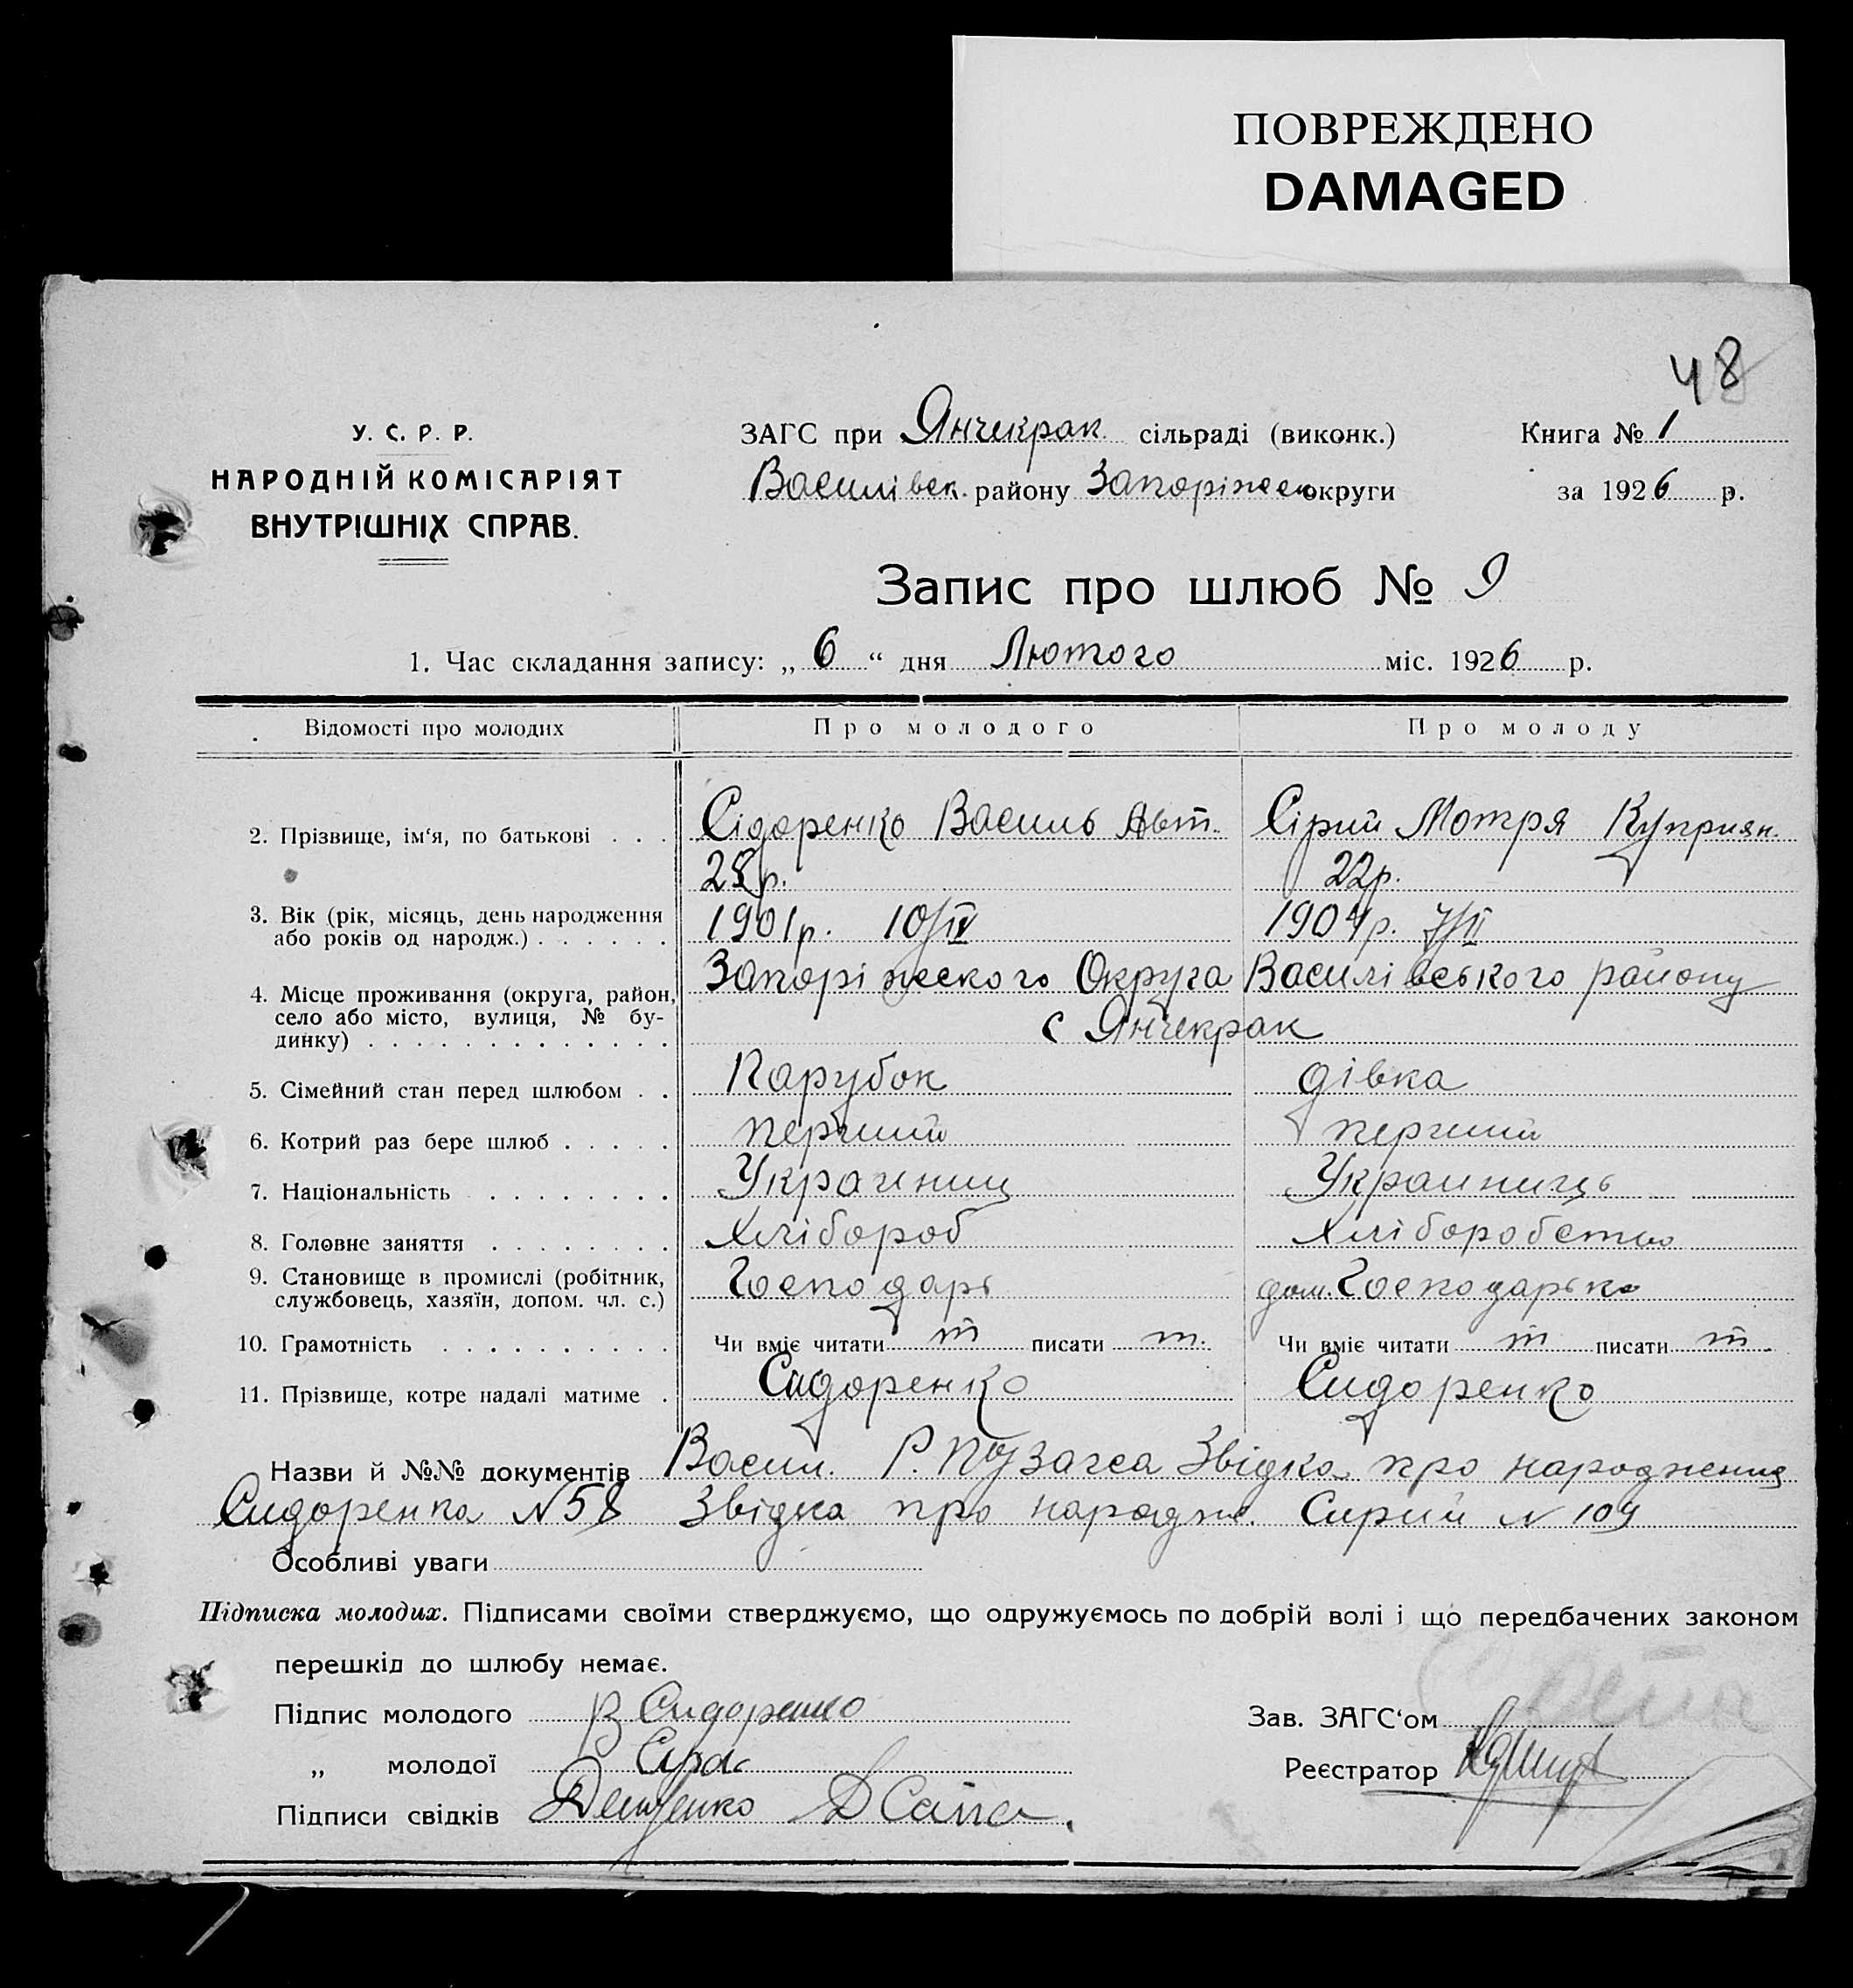 ПОВРЕЖДЕНО
DAMAGED
48
У. С. Р. Р.
НАРОДНІЙ КОМІСАРІЯТ
ВНУТРІШНІХ СПРАВ.
ЗАГС при Янчекрак сільраді (виконк.)
Василівск. району Запоріжск округи
Книга № 1
за 1926 р.
Запис про шлюб № 9
1. Час складання запису: „ 6 “ дня Лютого міс. 1926 р.
Відомості про молодих Про молодого Про молоду
2. Прізвище, ім‘я, по батькові . . . Сідоренко Василь Авт. Сірий Мотря Куприян.
25р. 22р.
3. Вік (рік, місяць, день народження 1901р. 10/IV 1904р. 7/II
або років од народж.) . . . . . .
Запоріжского Округа Василівського району
4. Місце проживання (округа, район,
село або місто, вулиця, № бу- с Янчекрак
динку) . . . . . . . . . . . . .
5. Сімейний стан перед шлюбом . . Парубок дівка
6. Котрий раз бере шлюб . . . . . перший перший
7. Національність . . . . . . . . Украиниц Украиниць
8. Головне заняття . . . . . . . . Хлібороб Хліборобство
9. Становище в промислі (робітник, Господарь дом. Господарька
службовець, хазяїн, допом. чл. с.)
10. Грамотність . . . . . . . . . . Чи вміє читати т писати т. Чи вміє читати т писати т
11. Прізвище, котре надалі матиме . Сидоренко Сидоренко
Назви й №№ документів Васил. Р. Загса Звідка про народження
Сидоренка N 58 Звідка про народж. Сирий N 109
Особливі уваги
Підписка молодих. Підписами своїми стверджуємо, що одружуємось по добрій волі і що передбачених законом
перешкід до шлюбу немає.
Підпис молодого В Сидоренко
„ молодої Сіра
Підписи свідків Д Сапа
Зав. ЗАГС‘ом
Реєстратор